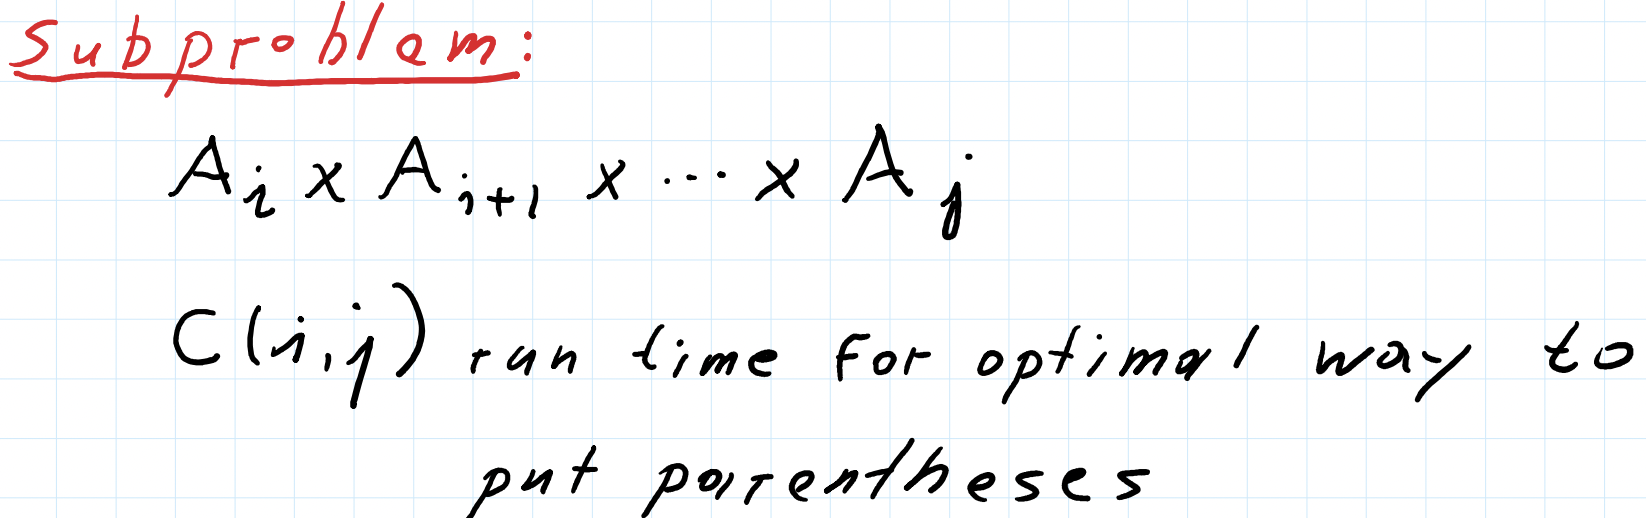 Subproblem:
A_i x A_{i+1} x ... x A_j
C(i,j) run time for optimal way to
put parentheses